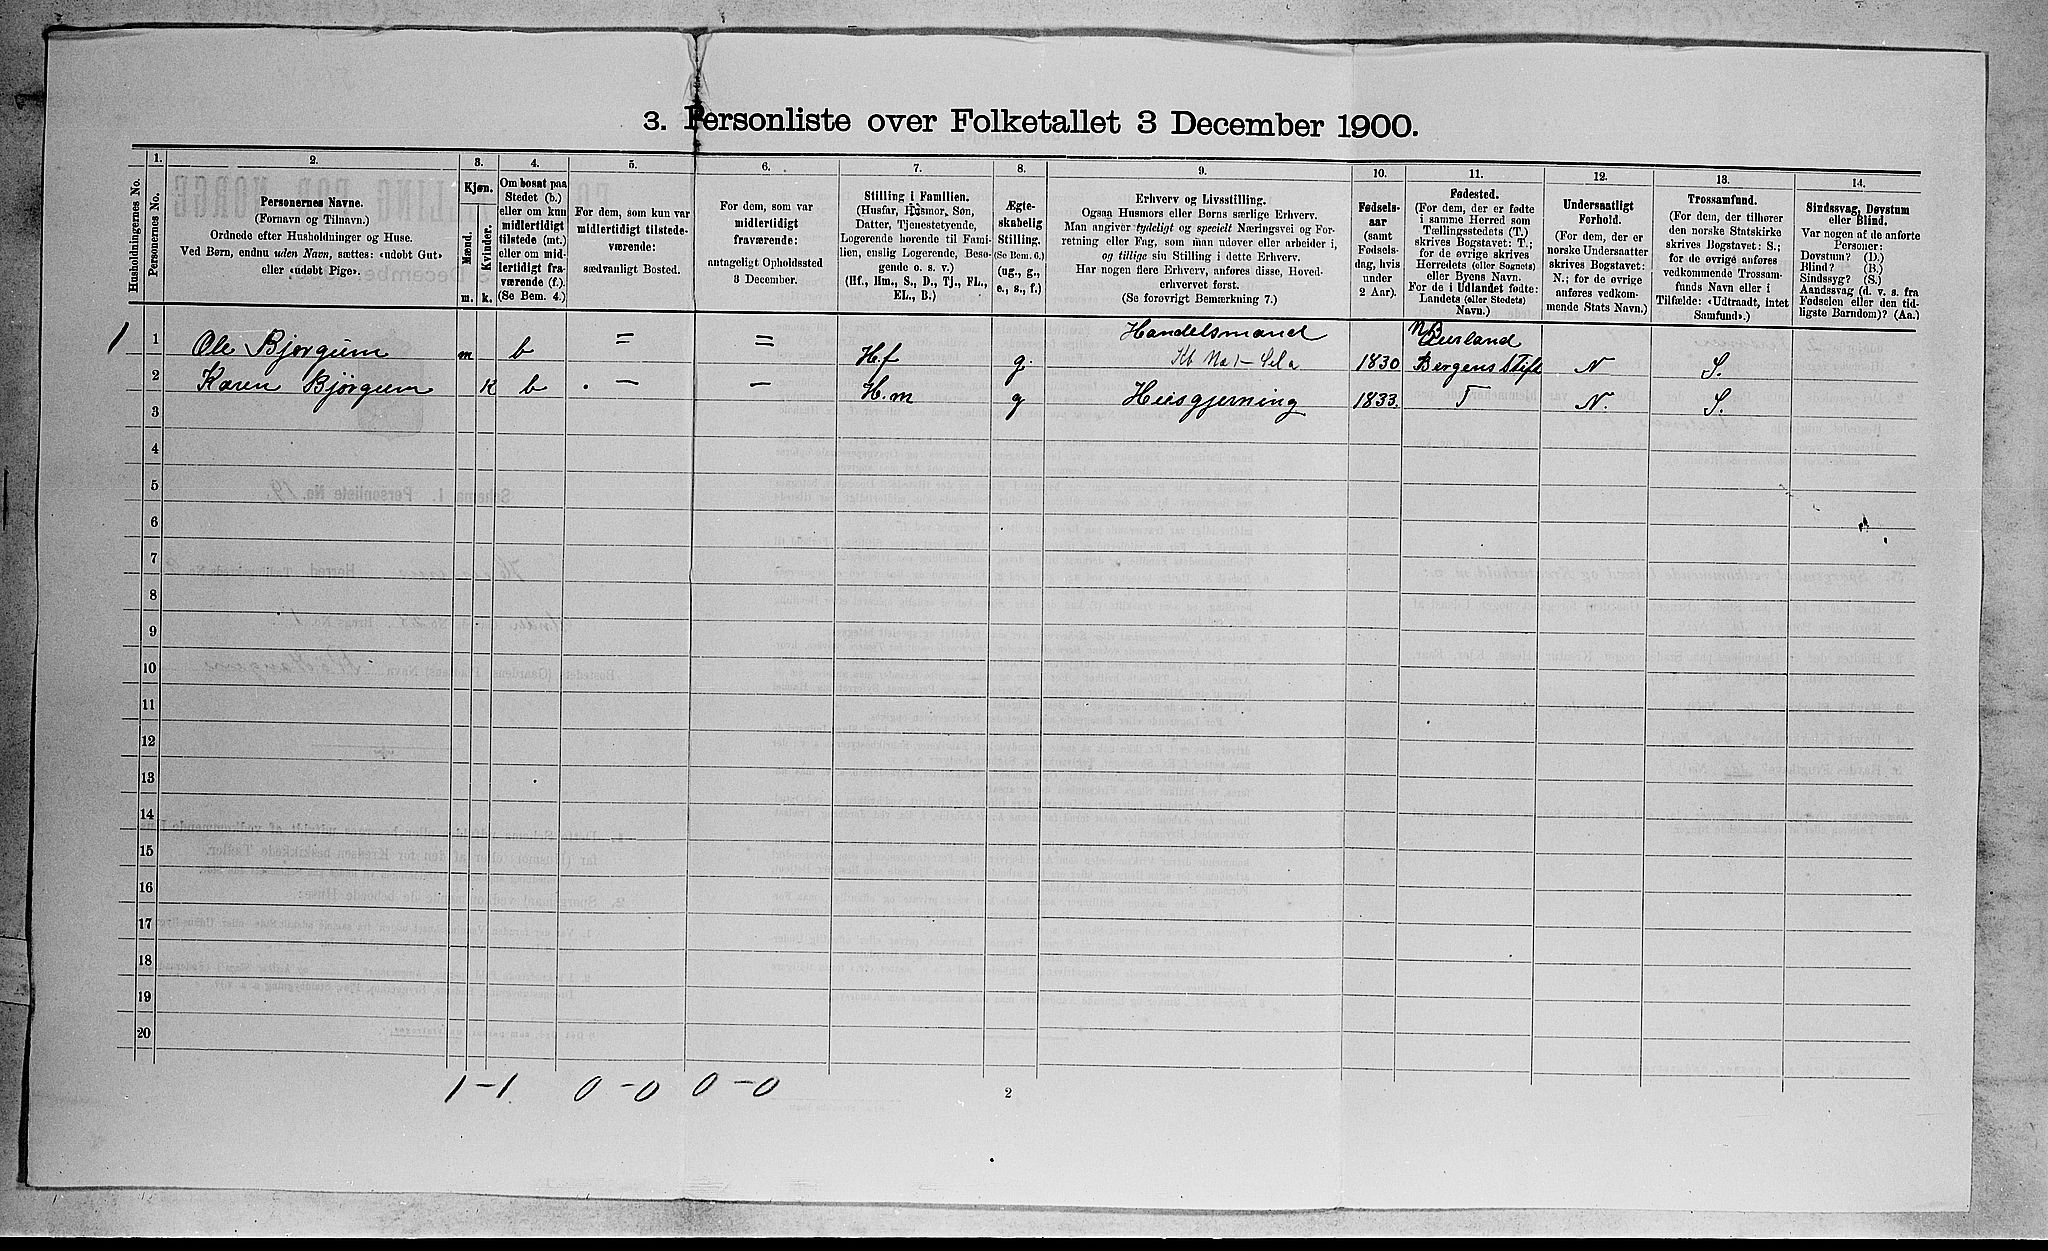 3. Personliste over Folketallet 3 December 1900.
Husholdningernes No.
1.
Personernes No.
2.
Personernes Navne.
(Fornavn og Tilnavn.)
Ordnede efter Husholdninger og Huse.
Ved Børn, endnu uden Navn, sættes: «udøbt Gut»
eller «udøbt Pige».
3.
Kjøn.
Mænd.
Kvinder.
m.
k.
4.
Om bosat paa
Stedet (b.)
eller om kun
midlertidigt
tilstede (mt.)
eller om mid-
lertidigt fra-
værende (f.).
(Se Bem. 4.)
5.
For dem, som kun var
midlertidigt tilstede-
værende:
sædvanligt Bosted.
6.
For dem, som var
midlertidigt
fraværende:
antageligt Opholdssted
3 December.
7.
Stilling i Familien.
(Husfar, Husmor, Søn,
Datter, Tjenestetyende,
Logerende hørende til Fami-
lien, enslig Logerende, Besø-
gende o. s. v.)
(Hf., Hm., S., D., Tj., FL.,
EL., B.)
8.
Ægte-
skabelig
Stilling.
(Se Bem. 6.)
(ug., g.,
e., s., f.)
9.
Erhverv og Livsstilling.
Ogsaa Husmors eller Børns særlige Erhverv.
Man angiver tydeligt og specielt Næringsvei og For-
retning eller Fag, som man udøver eller arbeider i,
og tillige sin Stilling i dette Erhverv.
Har nogen flere Erhverv, anføres disse, Hoved-
erhvervet først.
(Se forøvrigt Bemærkning 7.)
10.
Fødsels-
aar
(samt
Fødsels-
dag, hvis
under
2 Aar).
11.
Fødested.
(For dem, der er fødte
i samme Herred som
Tællingsstedets (T.)
skrives Bogstavet: T.;
for de øvrige skrives
Herredets (eller Sognets)
eller Byens Navn.
For de i Udlandet fødte:
Landets (eller Stedets)
Navn.)
12.
Undersaatligt
Forhold.
(For dem, der er
norske Undersaatter
skrives Bogstavet:
N.; for de øvrige
anføres vedkom-
mende Stats Navn.)
13.
Trossamfund.
(For dem, der tilhører
den norske Statskirke
skrives Bogstavet: S.;
for de øvrige anføres
vedkommende Trossam-
funds Navn eller i
Tilfælde: «Udtraadt, intet
Samfund».)
14.
Sindssvag, Døvstum
eller Blind.
Var nogen af de anførte
Personer:
Døvstum? (D.)
Blind? (B.)
Sindssyg? (S.)
Aandssvag (d. v. s. fra
Fødselen eller den tid-
ligste Barndom)? (Aa.)
1 1 Ole Bjørgum m b = = H.f g. Handelsmand 1830 Aurland Bergens Stift N S.
2 Karen Bjørgum K b . — — H.m g Husgjerning 1833. T N. S.
3
4
5
6
7
8
9
10
11
12
13
14
15
16
17
18
19
20
1 – 1 0 – 0 0 – 0
2